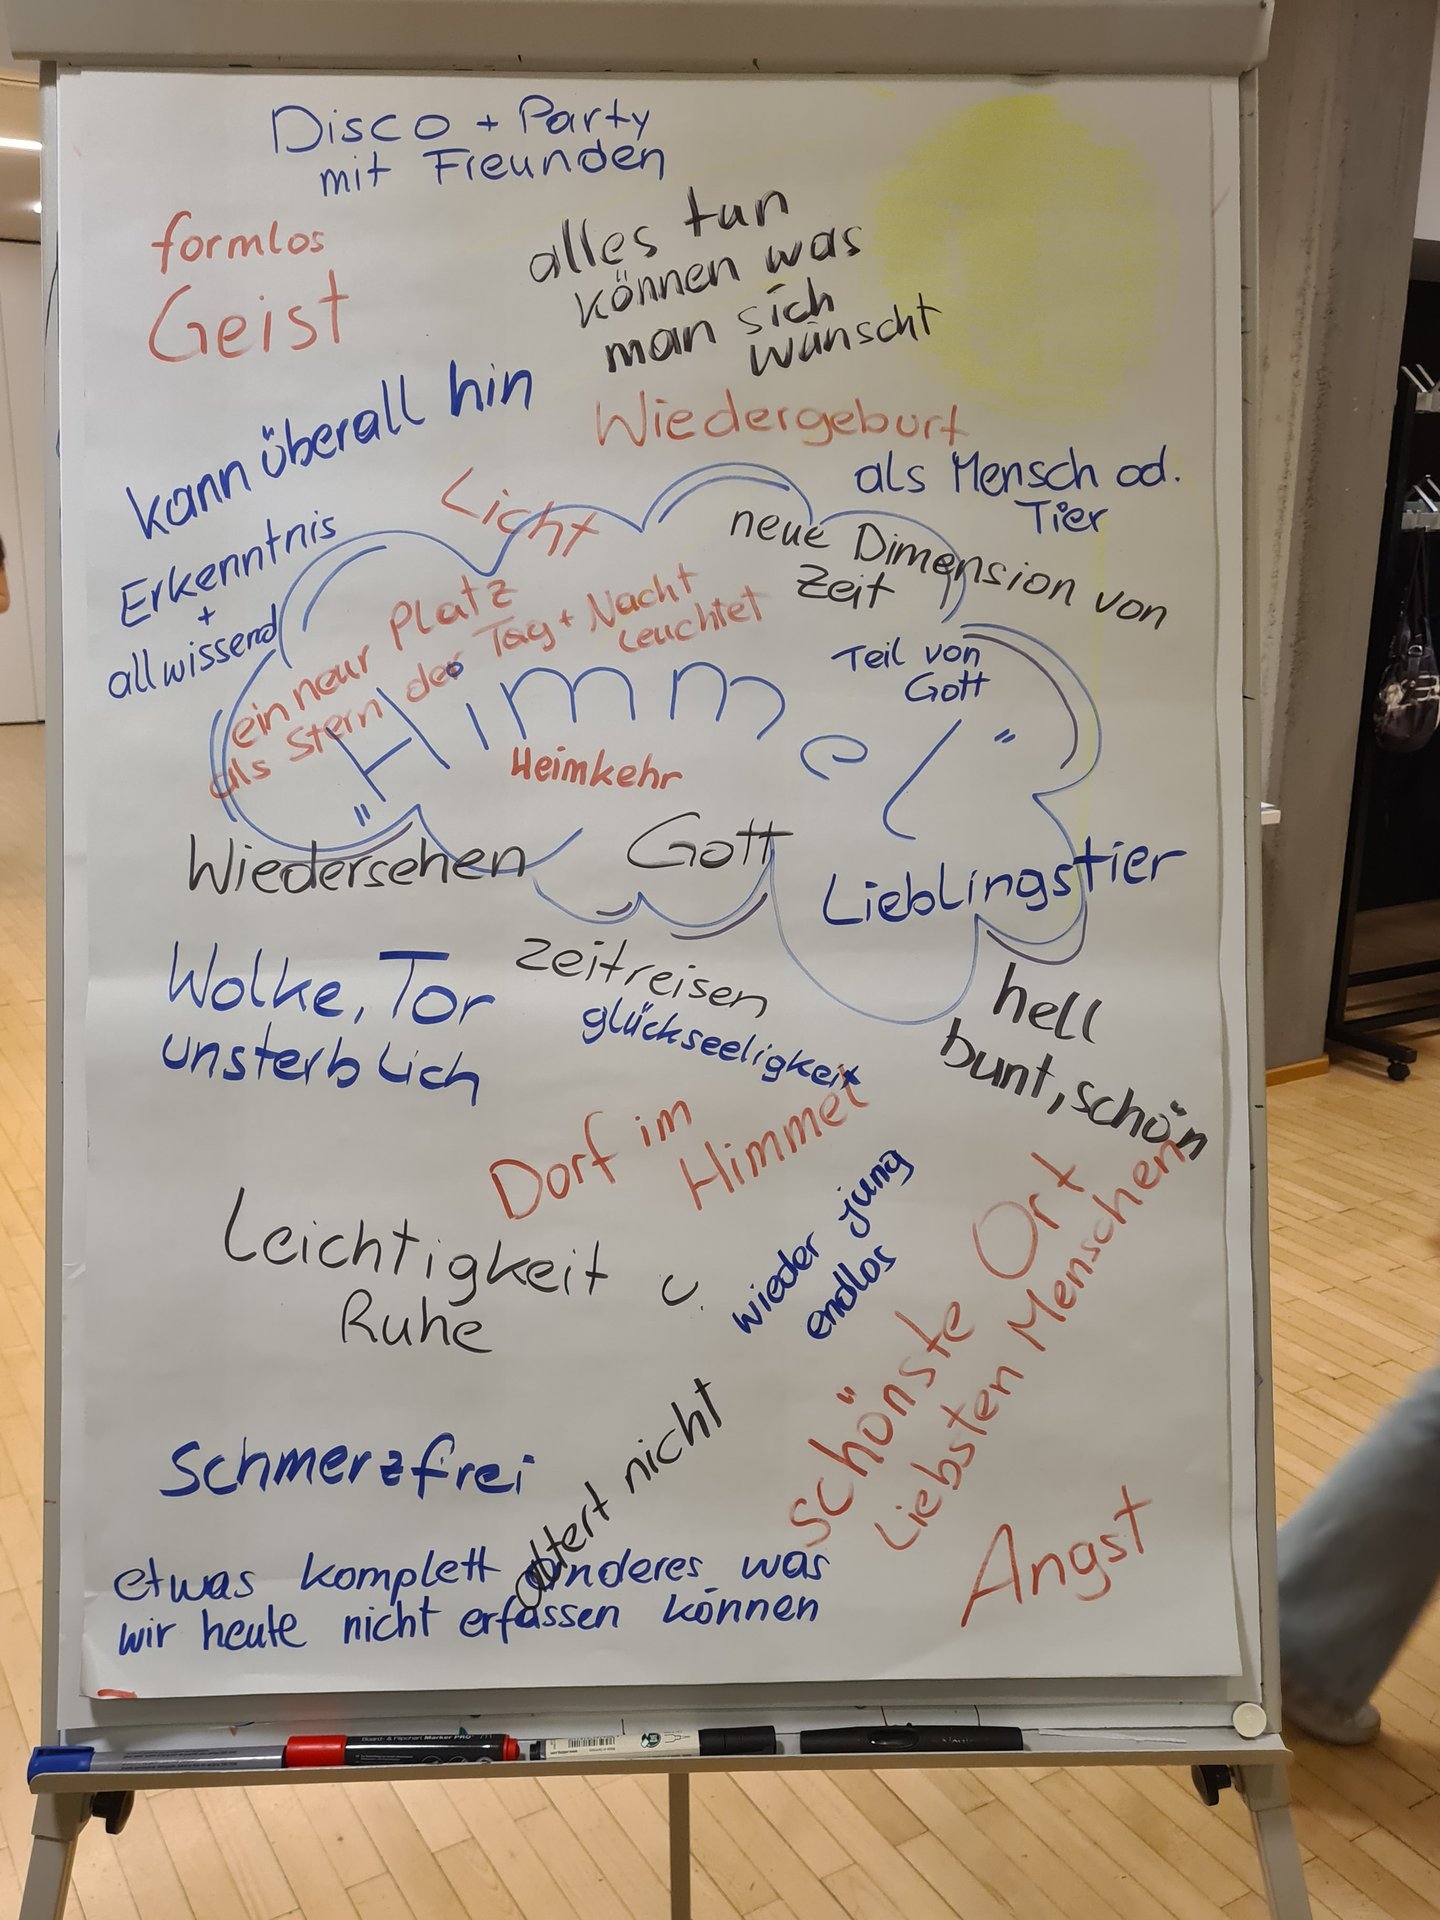 Disco + Party
mit Freunden
formlos
Geist
alles tun
können was
man sich
wünscht
kann überall hin
Wiedergeburt
als Mensch od.
Tier
Licht
Erkenntnis
+
allwissend
neue Dimension von
Zeit
ein neur Platz
als Stern der Tag + Nacht
leuchtet
Teil von
Gott
"Himmel"
Heimkehr
Wiedersehen
Gott
Lieblingstier
Wolke, Tor
unsterblich
Zeitreisen
glückseeligkeit
hell
bunt, schön
Dorf im
Himmel
Leichtigkeit u.
Ruhe
wieder jung
endlos
schönste Ort
Liebsten Menschen
Schmerzfrei
altert nicht
Angst
etwas komplett anderes was
wir heute nicht erfassen können
Board- & Flipchart Marker PRO